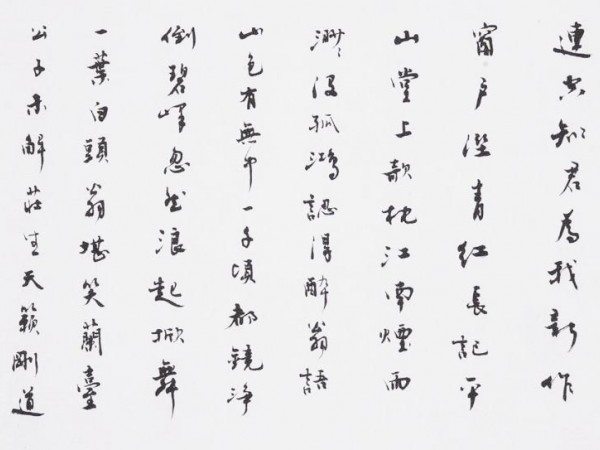 連空知君為我新作
窗戶溼青紅長記平
山堂上欹枕江南煙雨
渺〻沒孤鴻認得醉翁語
山色有無中一千頃都鏡淨
倒碧峰忽然浪起掀舞
一葉白頭翁堪笑蘭臺
公子未解莊生天籟剛道